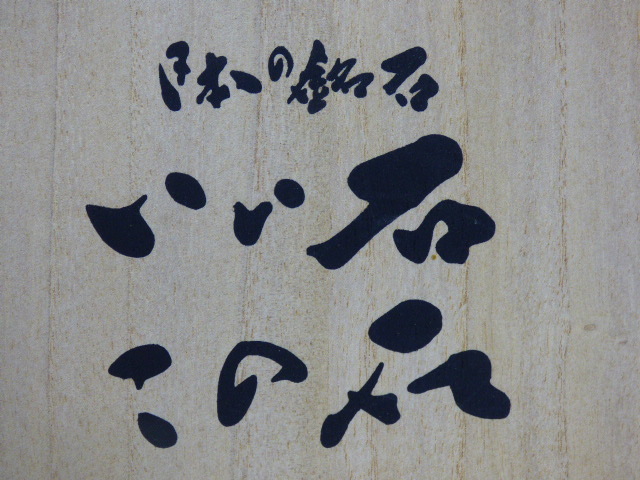 日本の銘石
いい石
この石